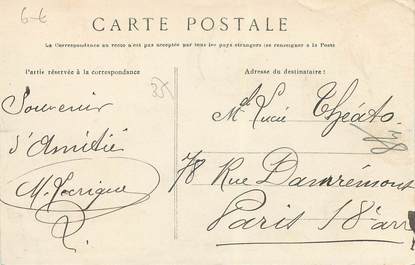 6-6
CARTE POSTALE
La Correspondance au recto n'est pas acceptée par tous les pays étrangers (se renseigner à la Poste
Partie réservée à la correspondance
Adresse du destinataire :
Souvenir
d'Amitié
Mlle Lucie Théato
78 Rue Damrémont
Paris 18e arr